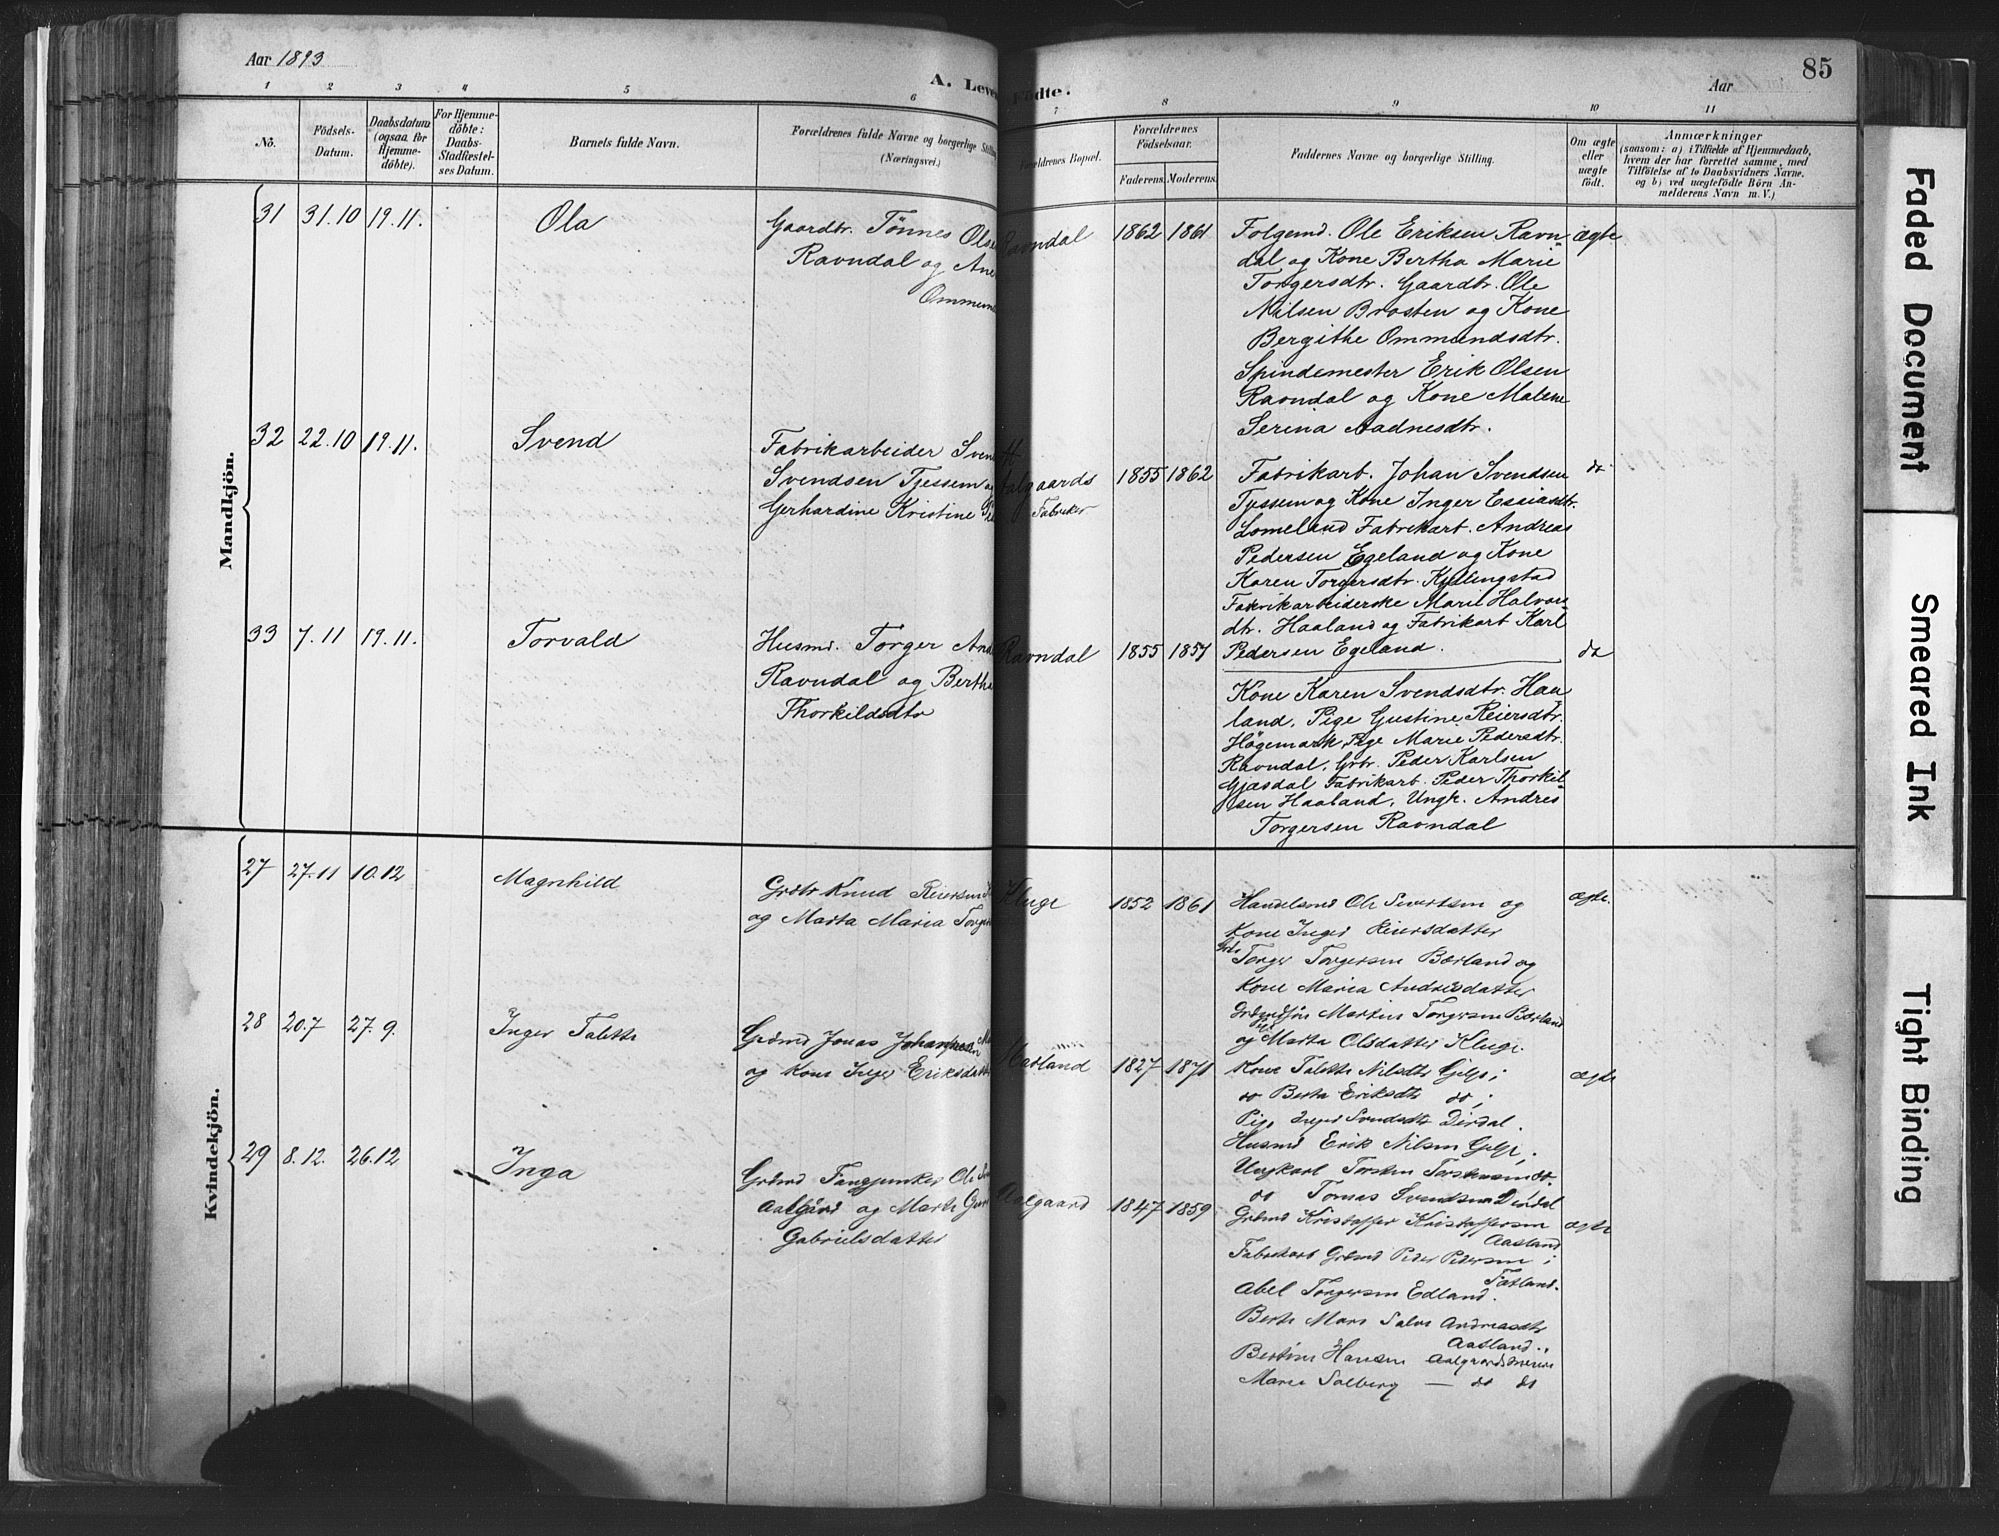 Aar 1893
A. Leve
Födte.
Aar
85
1 2 3 4 5 6 7 8 9 10 11
No.
Födsels-
Datum.
Daabsdatum
(ogsaa for
Hjemme-
döbte).
For Hjemme-
döbte:
Daabs-
Stadfestel-
ses Datum.
Barnets fulde Navn.
Forældrenes fulde Navne og borgerlige Stilling
(Næringsvei.)
Forældrenes Bopæl.
Forældrenes
Födselsaar.
Faderens. Moderens.
Faddernes Navne og borgerlige Stilling.
Om ægte
eller
uægte
födt.
Anmærkninger
(saasom: a) i Tilfælde af Hjemmedaab,
hvem der har forrettet samme, med
Tilföielse af to Daabsvidners Navne.
og b) ved uægtefödte Börn An-
melderens Navn m. V.)
Mandkjön.
31 31.10 19.11. Ola
Gaardbr. Tönnes Olse
Ravndal og Ane
Ommun
Ravndal
1862 1861
Folgemd. Ole Eriksen Ravn-
dal og Kone Bertha Marie
Torgersdtr. Gaardbr. Ole
Nilsen Brosten og Kone
Bergithe Ommundsdtr.
Spindemester Erik Olsen
Ravndal og Kone Malene
Serina Aadnesdtr.
ægte
32 22.10 19.11. Svend
Fabrikarbeider Sven
Svendsen Tjessem og
Gerhardine Kristine
Aalgaards
Fabriker
1855 1862
Fabrikarb. Johan Svendsen
Tjessem og Kone Inger Essiasdtr.
Lomeland Fabrikarb. Andreas
Pedersen Egeland og Kone
Karen Torgersdtr. Kyllingstad
Fabrikarbeiderske Maril Halvors-
dtr. Haaland og Fabrikarb Karl
Pedersen Egeland.
do
33 7.11 19.11. Torvald
Husmd. Torger And
Ravndal og Bertha
Thorkildsdtr
Ravndal
1855 1857
do
Kone Karen Svendsdtr. Haa
land, Pige Gustine Reiersdtr.
Högemark, Pige Marie Pedersdtr.
Ravndal, Gbr. Peder Karlsen
Gjæsdal Fabrikarb. Peder Thorkil-
sen Haaland, Ungk. Andres
Torgersen Ravndal
Kvindekjön.
27 27.11 10.12 Magnhild
Grbr Knud Reiersen
og Marta Maria Torger
Kluge
1852 1861
Handelsmd Ole Sivertsen og
Kone Inger Reiersdatter
Grbr
Torger Torgersen Bærland og
Kone Maria Andreasdatter
Martin Torgersen Bærland
og Marta Olsdatter Kluge.
ægte.
28 20.7 27.9. Inger Talette
Grdmd Jonas Johannesen
og Kone Inger Eriksdatter
Madland
1827 1871
Kone Talette Nilsdtr Gilje;
do Berta Eriksdtr do;
Pige Inger Svendsdtr Dirdal.
Husmd Erik Nilsen Gilje;
Ungkarl Torsten Torstensen do.
do Tomas Svendsen Dirdal
ægte
29 8.12. 26.12 Inga
Grdmd Ole
Aalgård og Marte
Gabrielsdatter
Aalgaard
1847 1859
Grdmd Kristoffer Kristoffersen
Aasland
Fabrikarb Grdmd Peder Pedersen;
Fotland.
Abel Torgersen Edland.
Berte Mari Andreasdtr
Aasland.,
Bertine Hansen Aalgaards
Marie Solberg — do do
ægte
Faded Document
Smeared Ink
Tight Binding